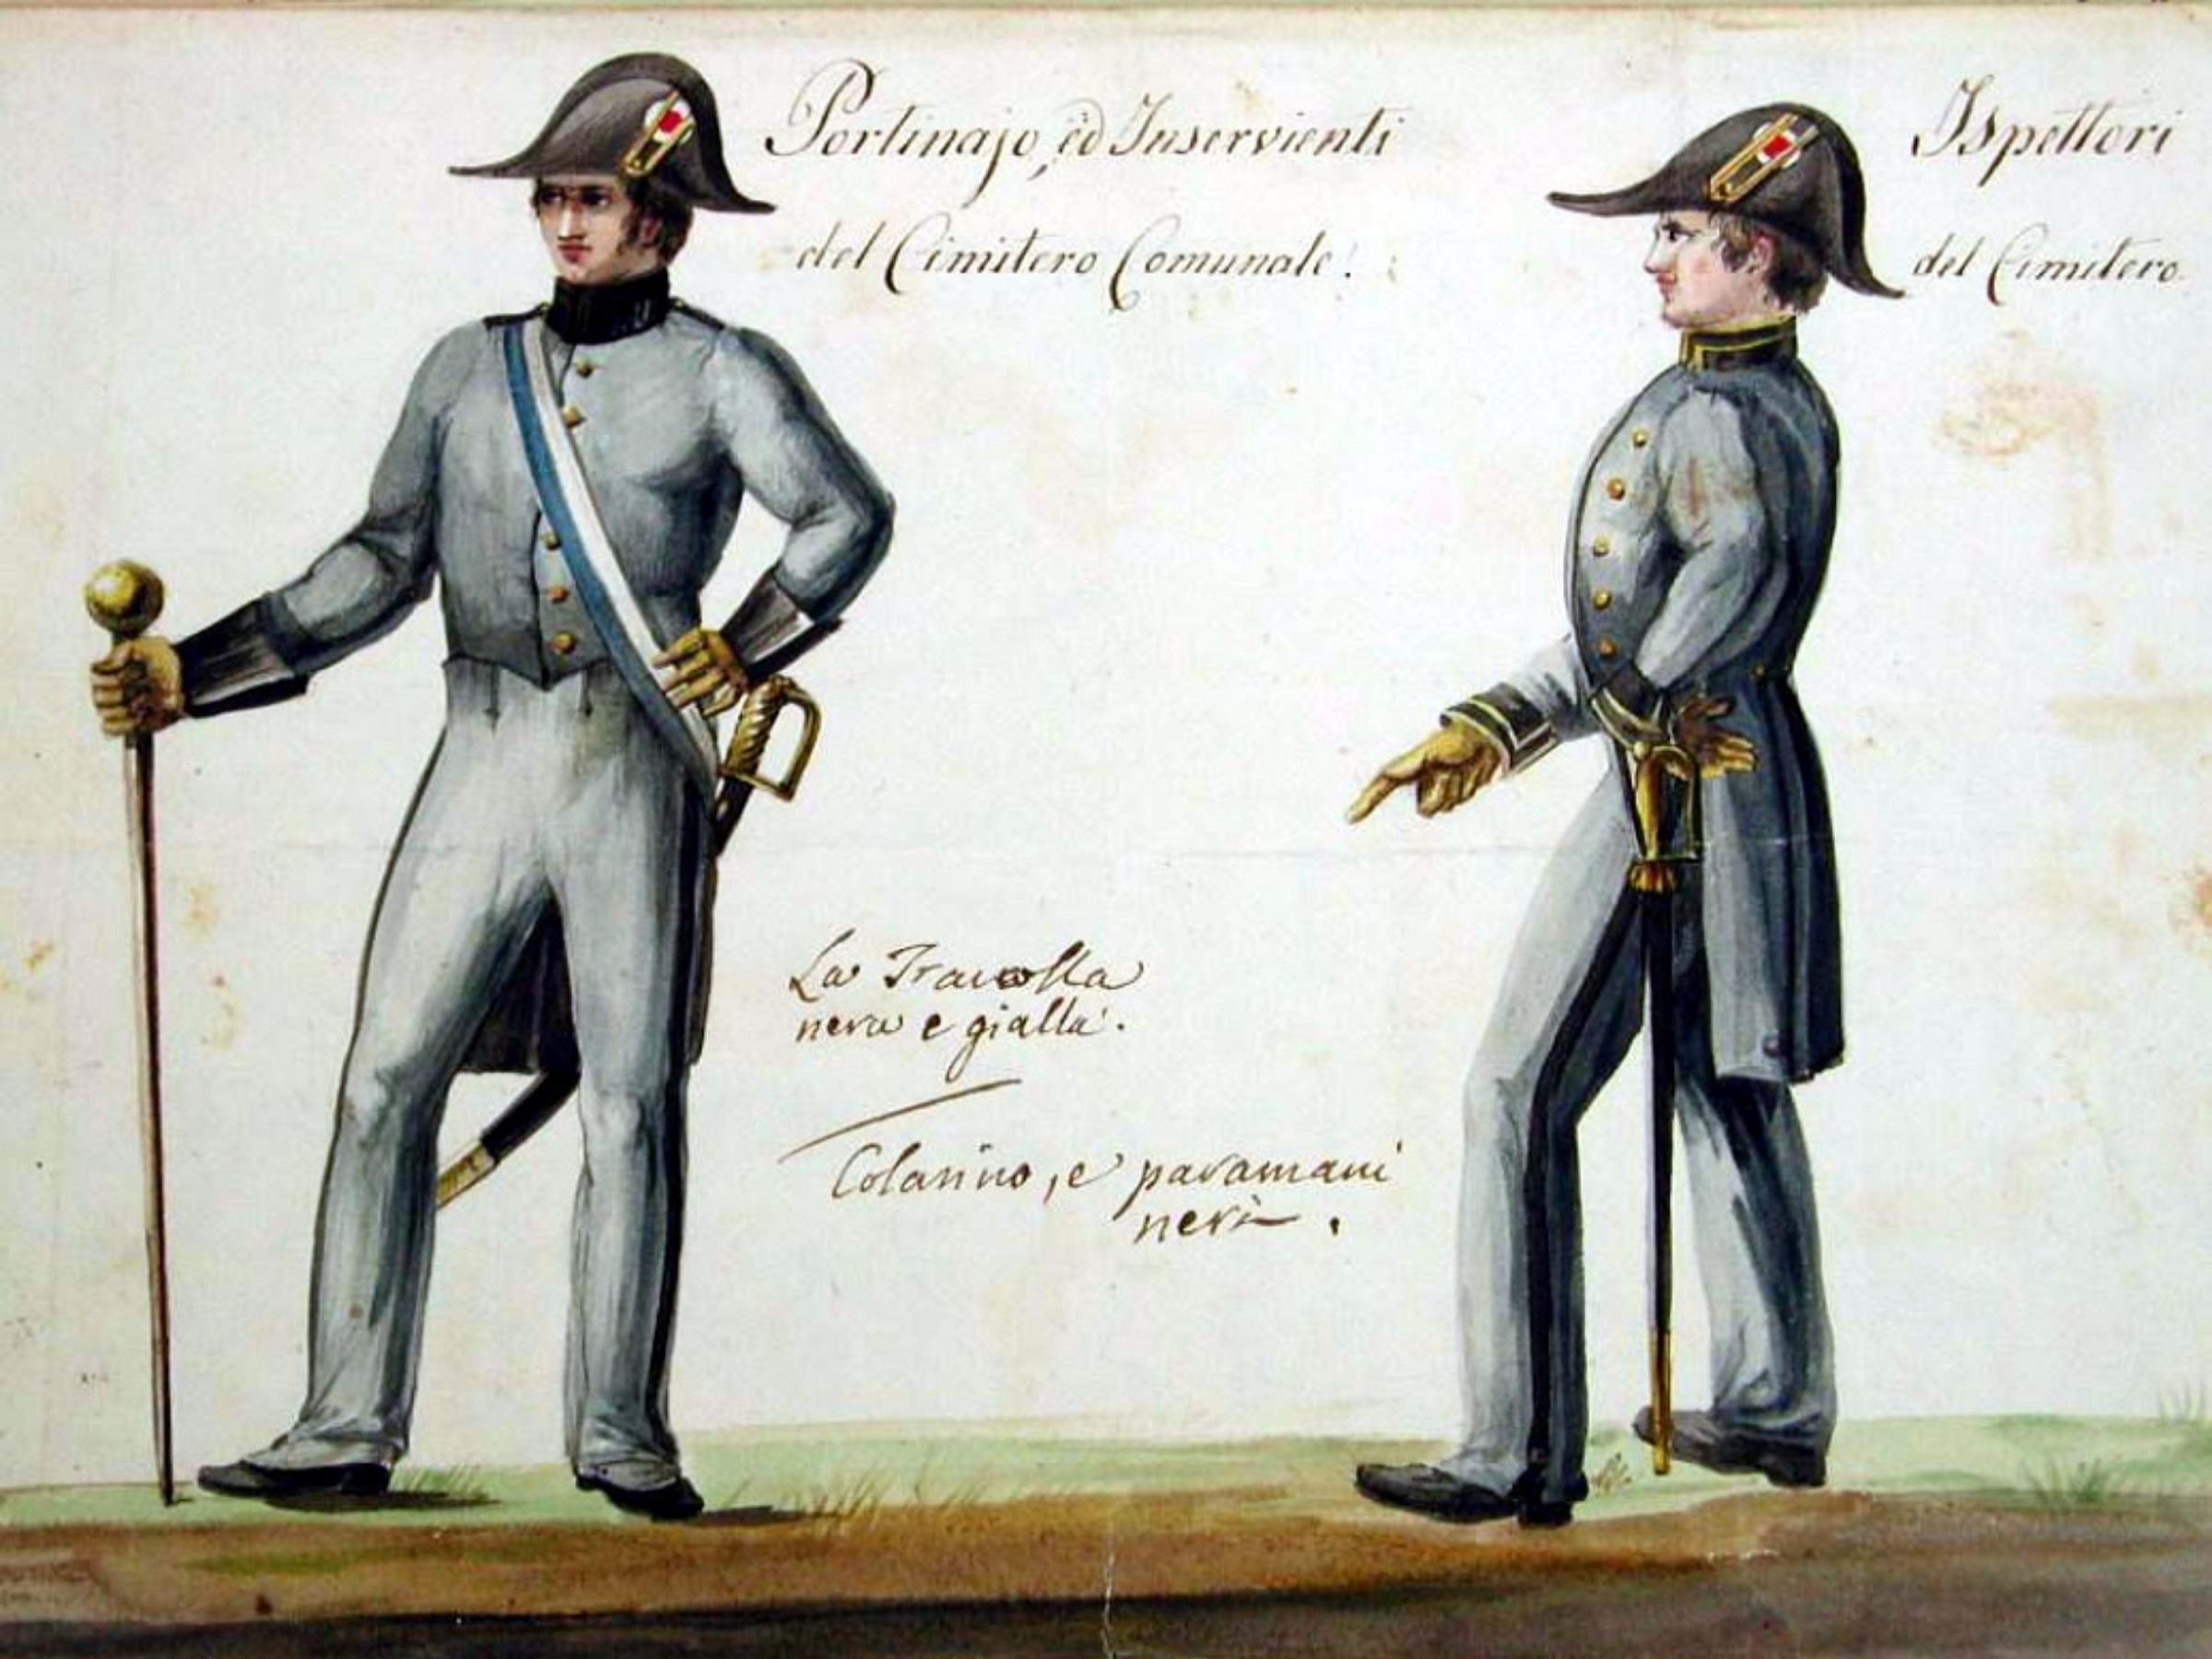 Portinajo, ed Inservienti
del Cimitero Comunale.
Ispettori
del Cimitero
La Tracolla
nera e gialla.
Colarino, e paramani
neri.